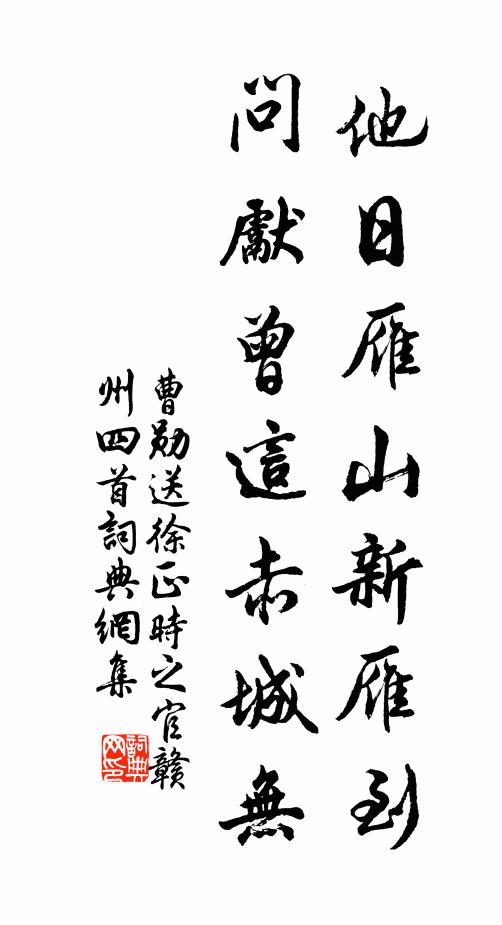 他日雁山新雁到
問獻曾這赤城無
曹勛送徐正時之官贛
州四首詞典網集
詞典網印